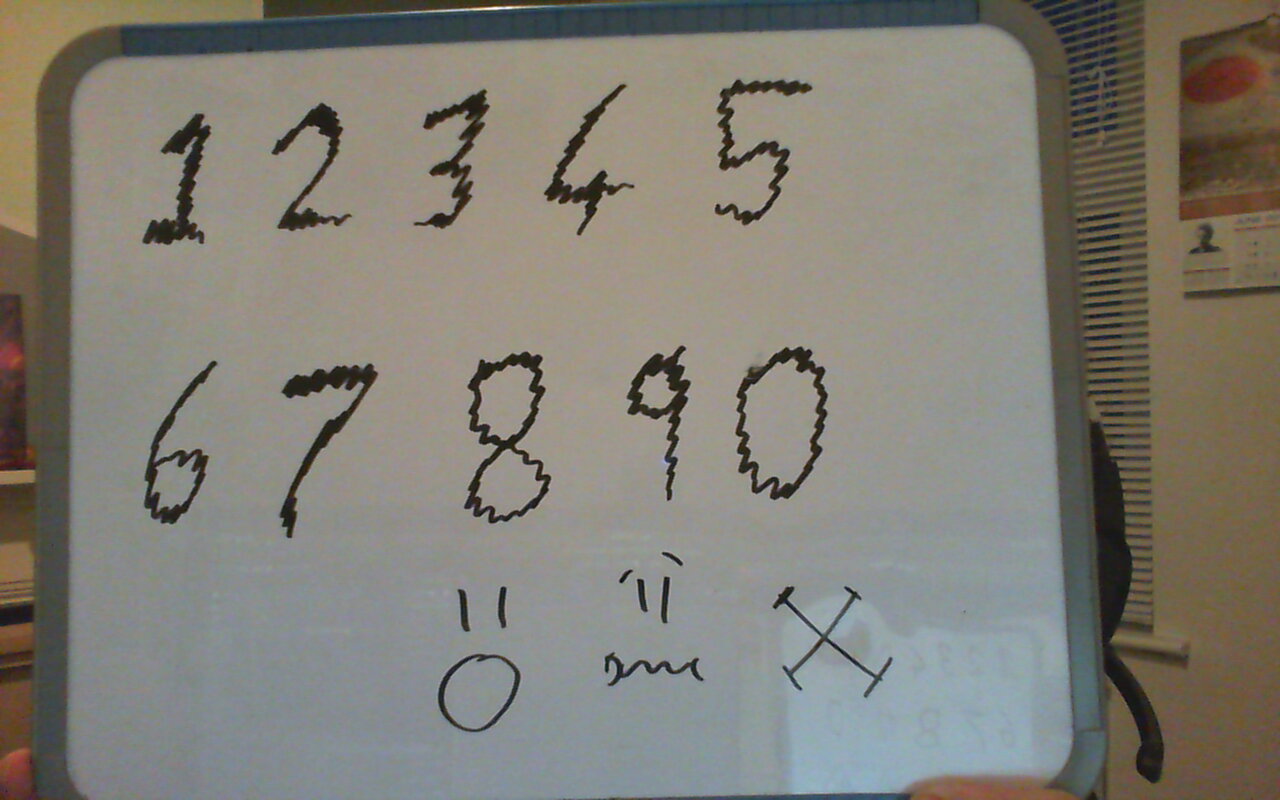 1 2 3 4 5
6 7 8 9 0
X